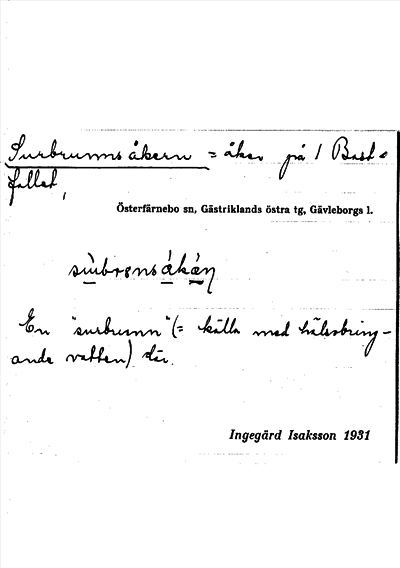 Surbrunnsåkern = åker på 1 Bast=
fallet,
Österfärnebo sn, Gästriklands östra tg, Gävleborgs l.
sùbrensákàn
En "surbrunn" (= källa med hälsobring-
ande vatten) där.
Ingegärd Isaksson 1931